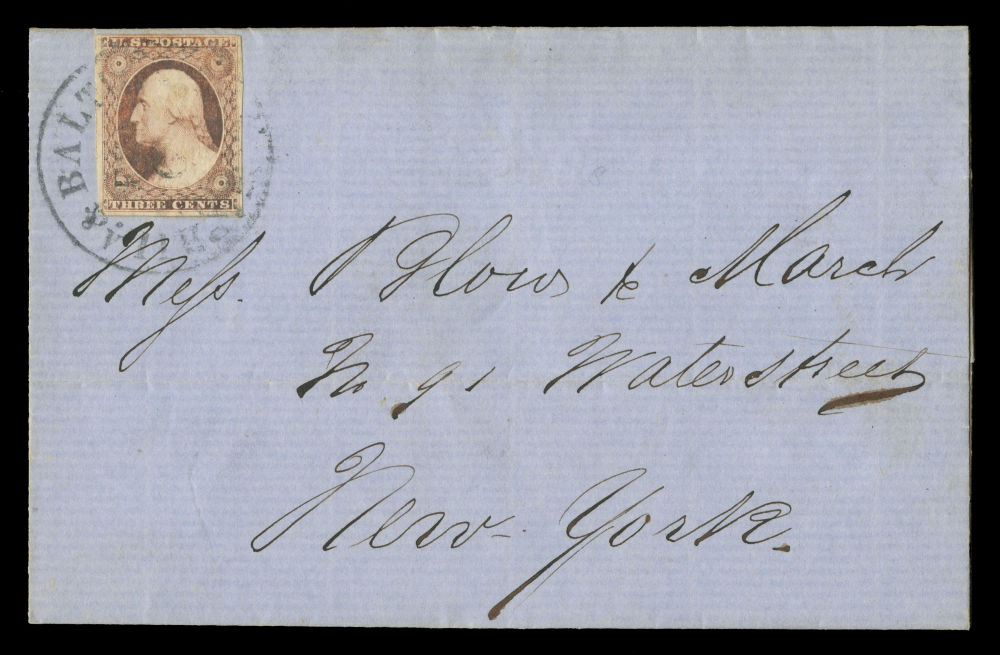 U.S. POSTAGE
THREE CENTS
& BALT
Mess. Plows & March
No 91 Water street
New-York.